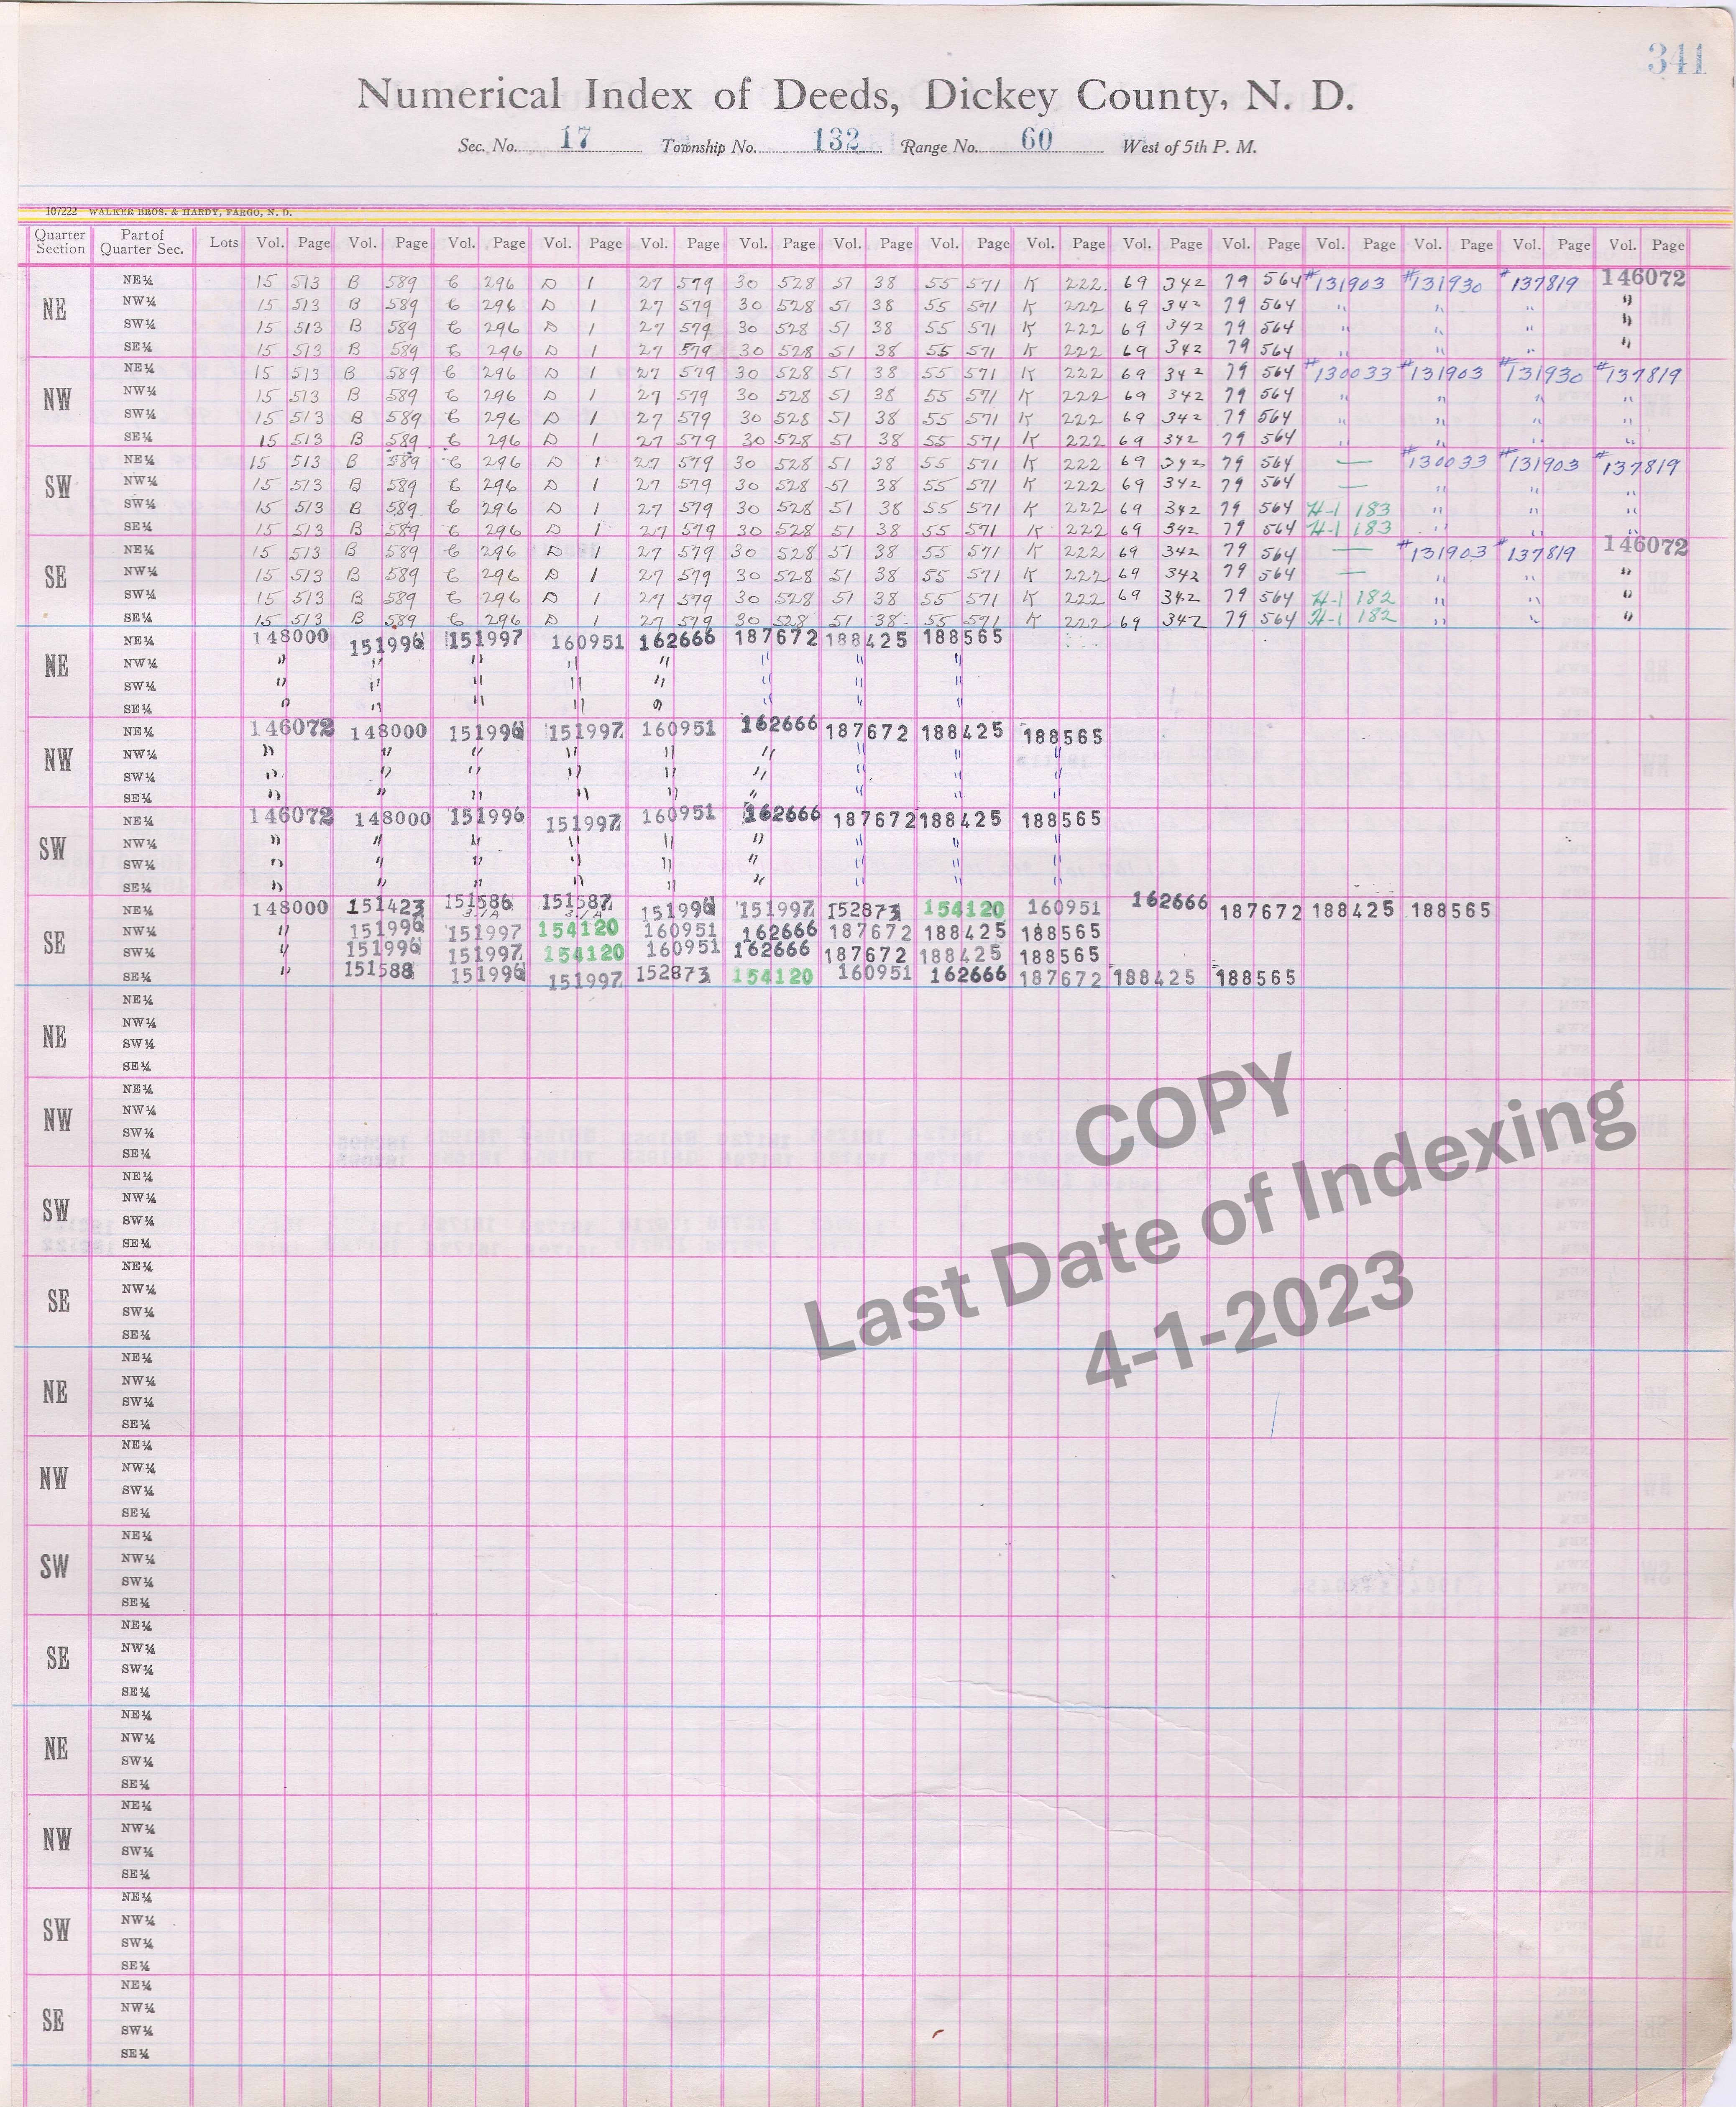 341
Numerical Index of Deeds, Dickey County, N. D.
Sec. No. 17 Township No. 132 Range No. 60 West of 5th P. M.
107222 WALKER BROS. & HARDY, FARGO, N. D.
Quarter Section Part of Quarter Sec. Lots Vol. Page Vol. Page Vol. Page Vol. Page Vol. Page Vol. Page Vol. Page Vol. Page Vol. Page Vol. Page Vol. Page Vol. Page Vol. Page Vol. Page Vol. Page
NE
NE¼ 15 513 B 589 C 296 D 1 27 579 30 528 51 38 55 571 K 222 69 342 79 564 #131903 #131930 #137819 146072
NW¼ 15 513 B 589 C 296 D 1 27 579 30 528 51 38 55 571 K 222 69 342 79 564 " " " "
SW¼ 15 513 B 589 C 296 D 1 27 579 30 528 51 38 55 571 K 222 69 342 79 564 " " " "
SE¼ 15 513 B 589 C 296 D 1 27 579 30 528 51 38 55 571 K 222 69 342 79 564 " " " "
NW
NE¼ 15 513 B 589 C 296 D 1 27 579 30 528 51 38 55 571 K 222 69 342 79 564 #130033 #131903 #131930 #137819
NW¼ 15 513 B 589 C 296 D 1 27 579 30 528 51 38 55 571 K 222 69 342 79 564 " " " "
SW¼ 15 513 B 589 C 296 D 1 27 579 30 528 51 38 55 571 K 222 69 342 79 564 " " " "
SE¼ 15 513 B 589 C 296 D 1 27 579 30 528 51 38 55 571 K 222 69 342 79 564 " " " "
SW
NE¼ 15 513 B 589 C 296 D 1 27 579 30 528 51 38 55 571 K 222 69 342 79 564 — #130033 #131903 #137819
NW¼ 15 513 B 589 C 296 D 1 27 579 30 528 51 38 55 571 K 222 69 342 79 564 — " " "
SW¼ 15 513 B 589 C 296 D 1 27 579 30 528 51 38 55 571 K 222 69 342 79 564 H-1 183 " " "
SE¼ 15 513 B 589 C 296 D 1 27 579 30 528 51 38 55 571 K 222 69 342 79 564 H-1 183 " " "
SE
NE¼ 15 513 B 589 C 296 D 1 27 579 30 528 51 38 55 571 K 222 69 342 79 564 — #131903 #137819 146072
NW¼ 15 513 B 589 C 296 D 1 27 579 30 528 51 38 55 571 K 222 69 342 79 564 — " " "
SW¼ 15 513 B 589 C 296 D 1 27 579 30 528 51 38 55 571 K 222 69 342 79 564 H-1 182 " " "
SE¼ 15 513 B 589 C 296 D 1 27 579 30 528 51 38 55 571 K 222 69 342 79 564 H-1 182 " " "
NE
NE¼ 148000 151996 151997 160951 162666 187672 188425 188565
NW¼ " " " " " " " "
SW¼ " " " " " " " "
SE¼ " " " " " " " "
NW
NE¼ 146072 148000 151996 151997 160951 162666 187672 188425 188565
NW¼ " " " " " " " " "
SW¼ " " " " " " " " "
SE¼ " " " " " " " " "
SW
NE¼ 146072 148000 151996 151997 160951 162666 187672 188425 188565
NW¼ " " " " " " " " "
SW¼ " " " " " " " " "
SE¼ " " " " " " " " "
SE
NE¼ 148000 151423 151586 151587 151996 151997 152873 154120 160951 162666 187672 188425 188565
NW¼ " 151996 151997 154120 160951 162666 187672 188425 188565
SW¼ " 151996 151997 154120 160951 162666 187672 188425 188565
SE¼ " 151588 151996 151997 152873 154120 160951 162666 187672 188425 188565
NE
NE¼
NW¼
SW¼
SE¼
NW
NE¼
NW¼
SW¼
SE¼
SW
NE¼
NW¼
SW¼
SE¼
SE
NE¼
NW¼
SW¼
SE¼
COPY
Last Date of Indexing
4-1-2023
NE
NE¼
NW¼
SW¼
SE¼
NW
NE¼
NW¼
SW¼
SE¼
SW
NE¼
NW¼
SW¼
SE¼
SE
NE¼
NW¼
SW¼
SE¼
NE
NE¼
NW¼
SW¼
SE¼
NW
NE¼
NW¼
SW¼
SE¼
SW
NE¼
NW¼
SW¼
SE¼
SE
NE¼
NW¼
SW¼
SE¼